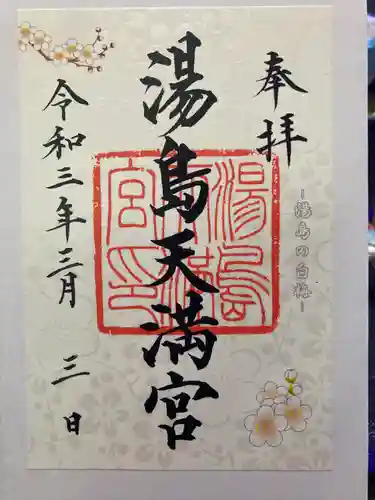 奉拝
－湯島の白梅－
湯島天満宮
湯島天満宮印
令和三年三月三日